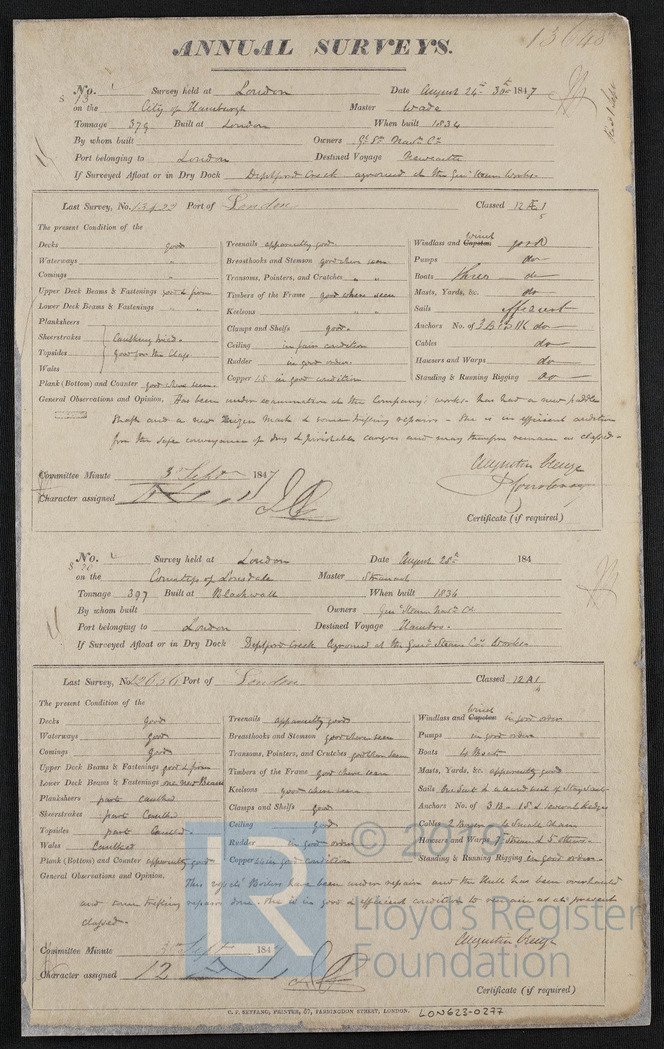 13648
ANNUAL SURVEYS.
No. Survey held at London Date August 24th 1847
on the City of Hamburgh Master Wade
Tonnage 379 Built at London When built 1834
By whom built Owners Gl. St. Navn. Co.
Port belonging to London Destined Voyage Newcastle
If Surveyed Afloat or in Dry Dock Deptford Creek aground at the Genl Steam Works
Last Survey, No. Port of London Classed 12 Æ 1
The present Condition of the
Decks good
Waterways "
Comings "
Upper Deck Beams & Fastenings good & firm
Lower Deck Beams & Fastenings " "
Planksheers
Sheerstrakes Caulking
Topsides Good for the Class
Wales
Plank (Bottom) and Counter good where seen
Treenails apparently good
Breasthooks and Stemson good where seen
Transoms, Pointers, and Crutches " "
Timbers of the Frame good where seen
Keelsons "
Clamps and Shelfs good
Ceiling in fair condition
Rudder in good order
Copper is in good condition
Winch
Windlass and Capstan good
Pumps do
Boats Three do
Masts, Yards, &c. do
Sails efficient
Anchors No. of 3 B 1 S 1 K do
Cables do
Hausers and Warps do
Standing & Running Rigging do
General Observations and Opinion, Has been under examination at the Company's works. Has had a new paddle
shaft and a new Mizen Mast & some trifling repairs - She is in efficient condition
for the safe conveyance of dry & perishable cargoes and may therefore remain as classed -
Committee Minute 3rd Septr 1847
Character assigned
Augustin Creuze
Certificate (if required)
No. Survey held at London Date August 28th 184
on the Countess of Lonsdale Master
Tonnage 397 Built at Blackwall When built 1836
By whom built Owners Genl Steam Navn Co
Port belonging to London Destined Voyage Hambro
If Surveyed Afloat or in Dry Dock Deptford Creek aground at the Genl Steam Cos Works
Last Survey, No. 13656 Port of London Classed 12 A 1
The present Condition of the
Decks good
Waterways good
Comings good
Upper Deck Beams & Fastenings good & firm
Lower Deck Beams & Fastenings one new Beam
Planksheers part caulked
Sheerstrakes part Caulked
Topsides part Caulked
Wales Caulked
Plank (Bottom) and Counter apparently good
Treenails apparently good
Breasthooks and Stemson good where seen
Transoms, Pointers, and Crutches good where seen
Timbers of the Frame good where seen
Keelsons good where seen
Clamps and Shelfs good
Ceiling good
Rudder in good order
Copper is in good condition
Winch
Windlass and Capstan in good order
Pumps in good order
Boats
Masts, Yards, &c. apparently good
Sails One Suit &
Anchors No. of 3 B - 1 S & several Kedges
Cables 2 Bower Chain
Hausers and Warps 1 Stream & 5 others
Standing & Running Rigging in good order
General Observations and Opinion, This vessels' Boilers have been under repairs and the Hull has been overhauled
and some trifling repairs done. She is in good & efficient condition to remain as at present
classed.
Committee Minute 3rd Septr 184
Character assigned 12 A 1
Augustin Creuze
Certificate (if required)
C. F. SEYFANG, PRINTER, 57, FARRINGDON STREET, LONDON. LON623-0277
LR © 2019
Lloyd's Register
Foundation